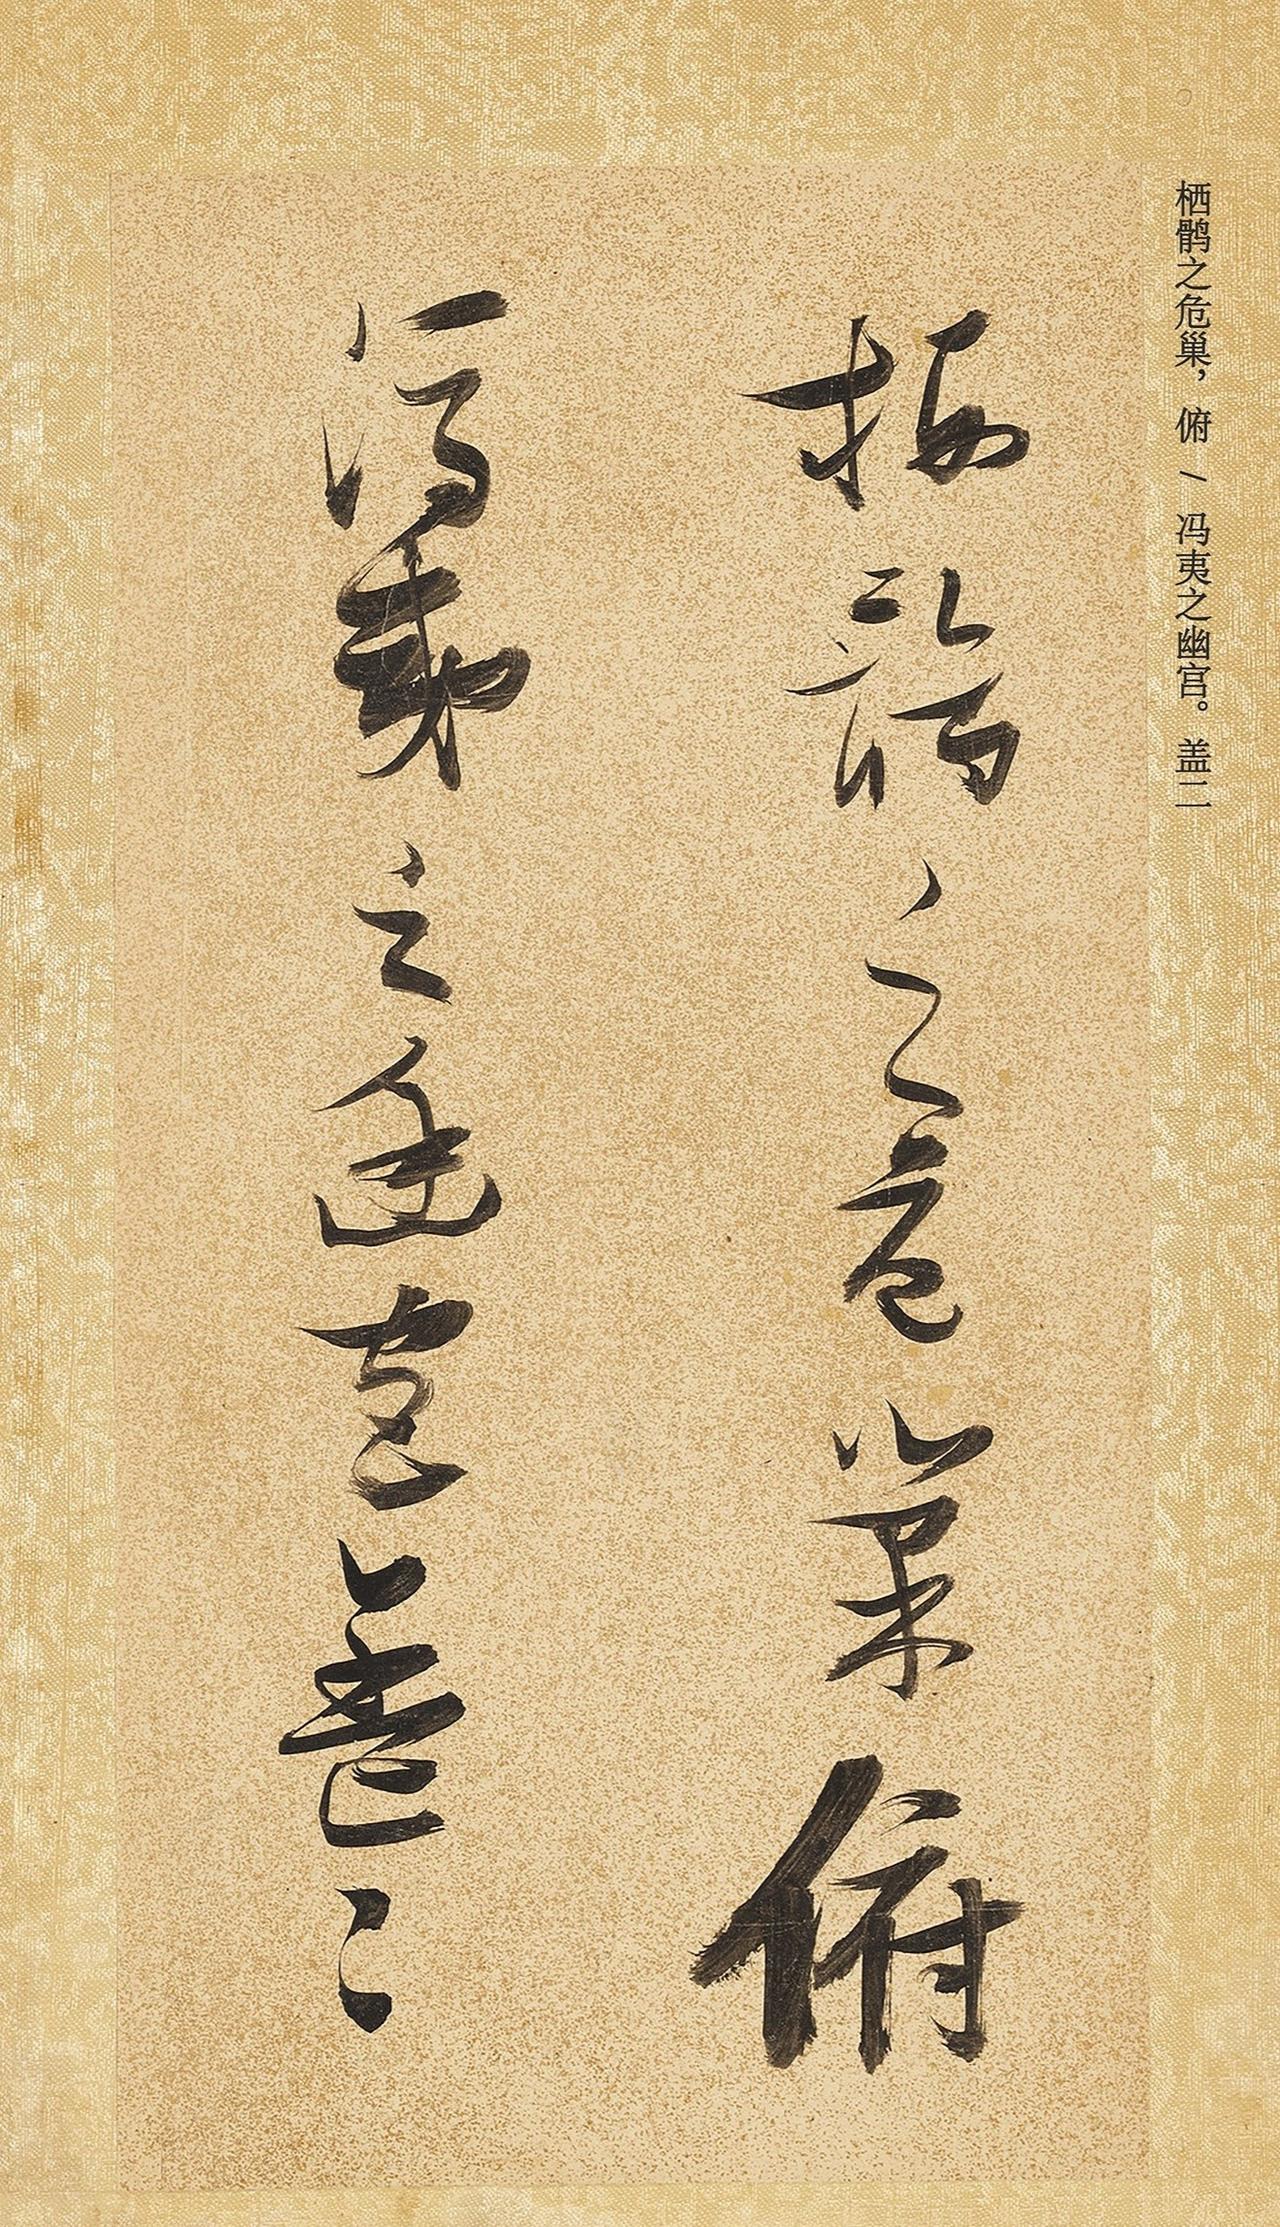 栖鹘之危巢，俯 / 冯夷之幽宫。盖二
栖鶻之危巢俯
馮夷之幽宮蓋二